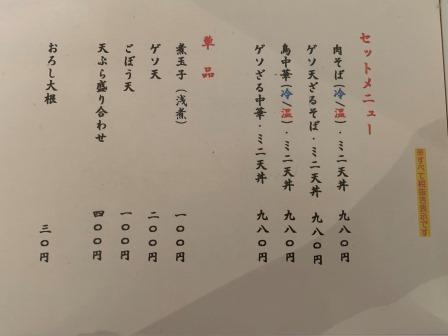 ※すべて税込表示です
セットメニュー
肉そば(冷/温)・ミニ天丼 九八0円
ゲソ天ざるそば・ミニ天丼 九八0円
鳥中華(冷/温)・ミニ天丼 九八0円
ゲソざる中華・ミニ天丼 九八0円
単品
煮玉子(浅煮) 一00円
ゲソ天 二00円
ごぼう天 一00円
天ぷら盛り合わせ 四00円
おろし大根 三0円